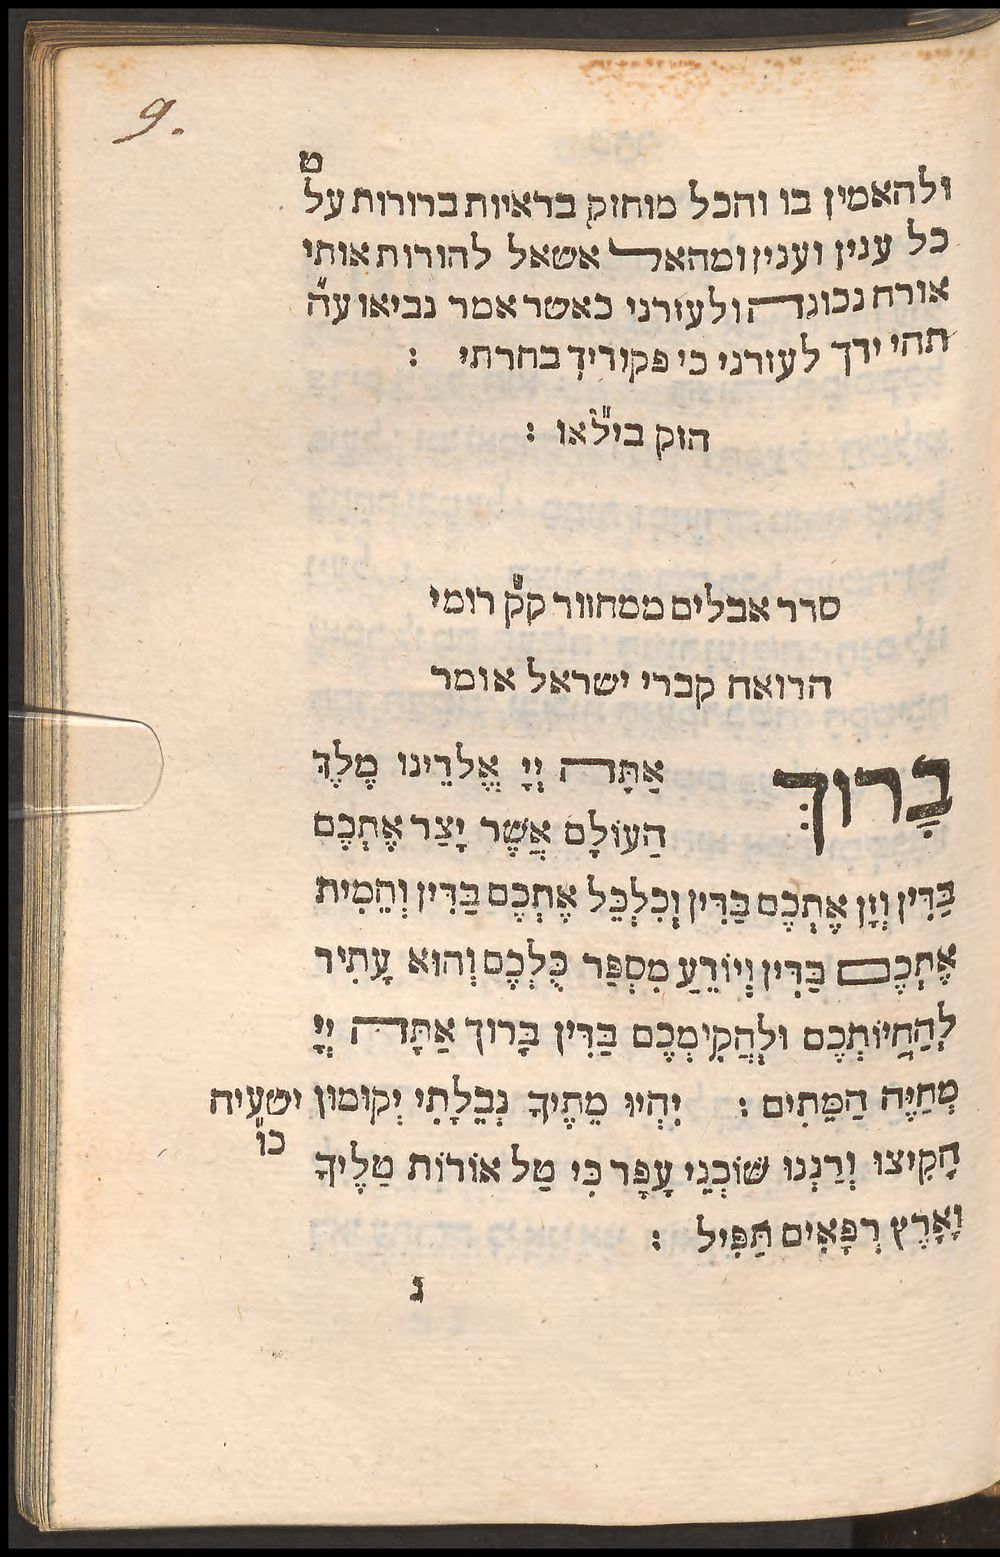 9.
ט
ולהאמין בו והכל מוחזק בראיות ברורות על
כל ענין וענין ומהאל אשאל להורות אותי
אורח נכונה ולעזרני כאשר אמר נביאו ע״ה
תהי ידך לעזרני כי פקודיך בחרתי :
חזק ביל״או :
סדר אבלים ממחזור ק״ק רומי
הרואה קברי ישראל אומר
בָּרוּךְ אַתָּה יְיָ אֱלֹהֵינוּ מֶלֶךְ
הָעוֹלָם אֲשֶׁר יָצַר אֶתְכֶם
בַּדִּין וְזָן אֶתְכֶם בַּדִּין וְכִלְכֵּל אֶתְכֶם בַּדִּין וְהֵמִית
אֶתְכֶם בַּדִּין וְיוֹדֵעַ מִסְפַּר כֻּלְּכֶם וְהוּא עָתִיד
לְהַחֲיוֹתְכֶם וּלְהֲקִימְכֶם בַּדִּין בָּרוּךְ אַתָּה יְיָ
מְחַיֶּה הַמֵּתִים : יִהְיוּ מֵתֶיךָ נְבֵלָתִי יְקוּמוּן ישעיה
כו״
הָקִיצוּ וְרַנְּנוּ שׁוֹכְנֵי עָפָר כִּי טַל אוֹרוֹת טַלֶּיךָ
וָאָרֶץ רְפָאִים תַּפִּיל :
ג